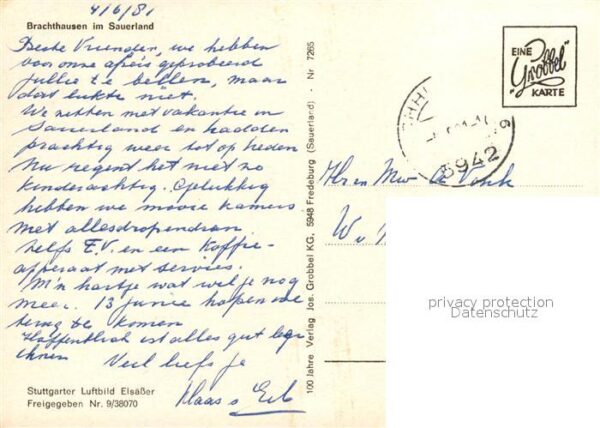 4/6/81
Brachthausen im Sauerland
Beste Vrienden, we hebben
voor onze afreis geprobeerd
jullie te bellen, maar
dat lukte niet.
We zitten met vakantie in
Sauerland en hadden
prachtig weer tot op heden
Nu regent het niet zo
kinderachtig. Gelukkig
hebben we mooie kamers
met alles
zelfs T.V. en een Koffie-
apparaat met servies.
M'n hartje wat wil je nog
meer. 13 junie hopen we
terug te komen
Hoffentlich ist alles gut bei
ihnen
Veel liefs je
Klaas
Stuttgarter Luftbild Elsäßer
Freigegeben Nr. 9/38070
100 Jahre Verlag Jos. Grobbel KG, 5948 Fredeburg (Sauerland) · Nr 7265
EINE
"Grobbel"
KARTE
5942
Hr en Mw
privacy protection
Datenschutz